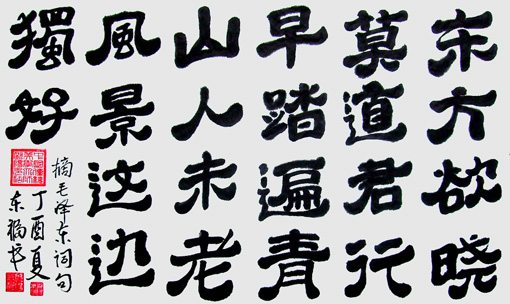 东方欲晓
莫道君行
早踏遍青
山人未老
風景这边
獨好
摘毛泽东词句
丁酉夏
东福书